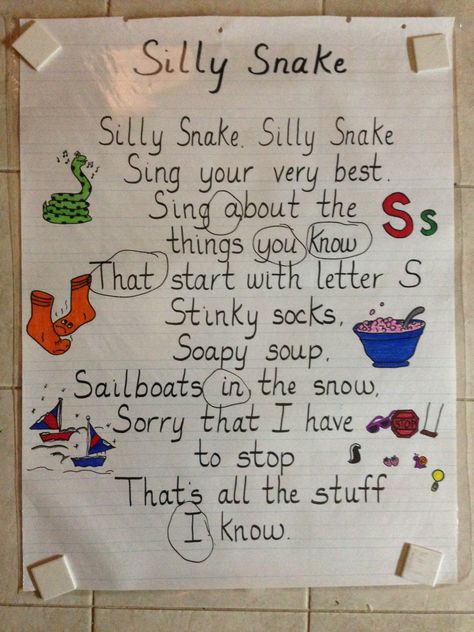 Silly Snake
Silly Snake. Silly Snake
Sing your very best.
Sing about the
things you know
That start with letter S
Stinky socks,
Soapy soup,
Sailboats in the snow,
Sorry that I have
to stop
That's all the stuff
I know.
S s
STOP